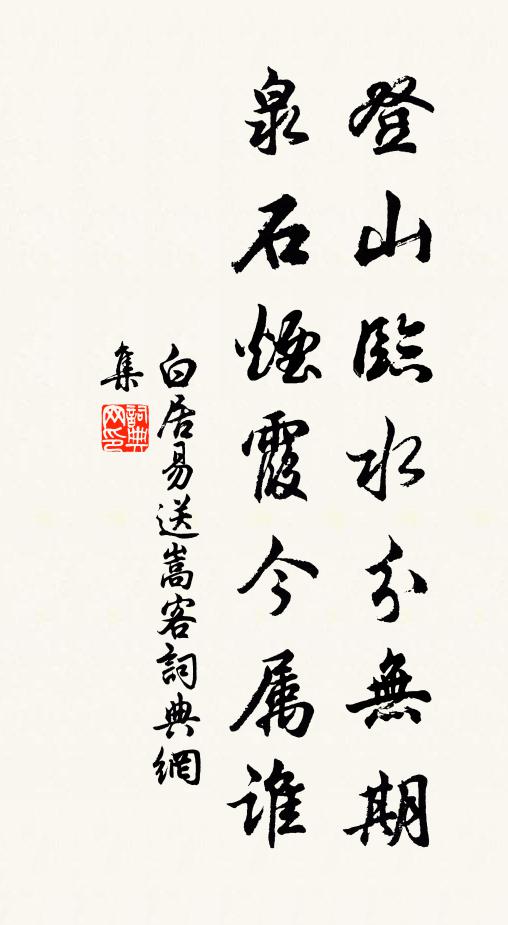 登山臨水分無期
泉石煙霞今属誰
白居易送嵩客詞典網
集
詞典
网印